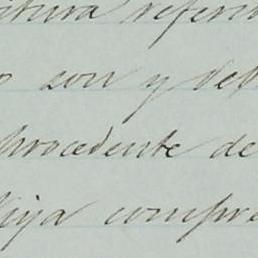 itura referid
o son y de
procedente de
Rioja compre